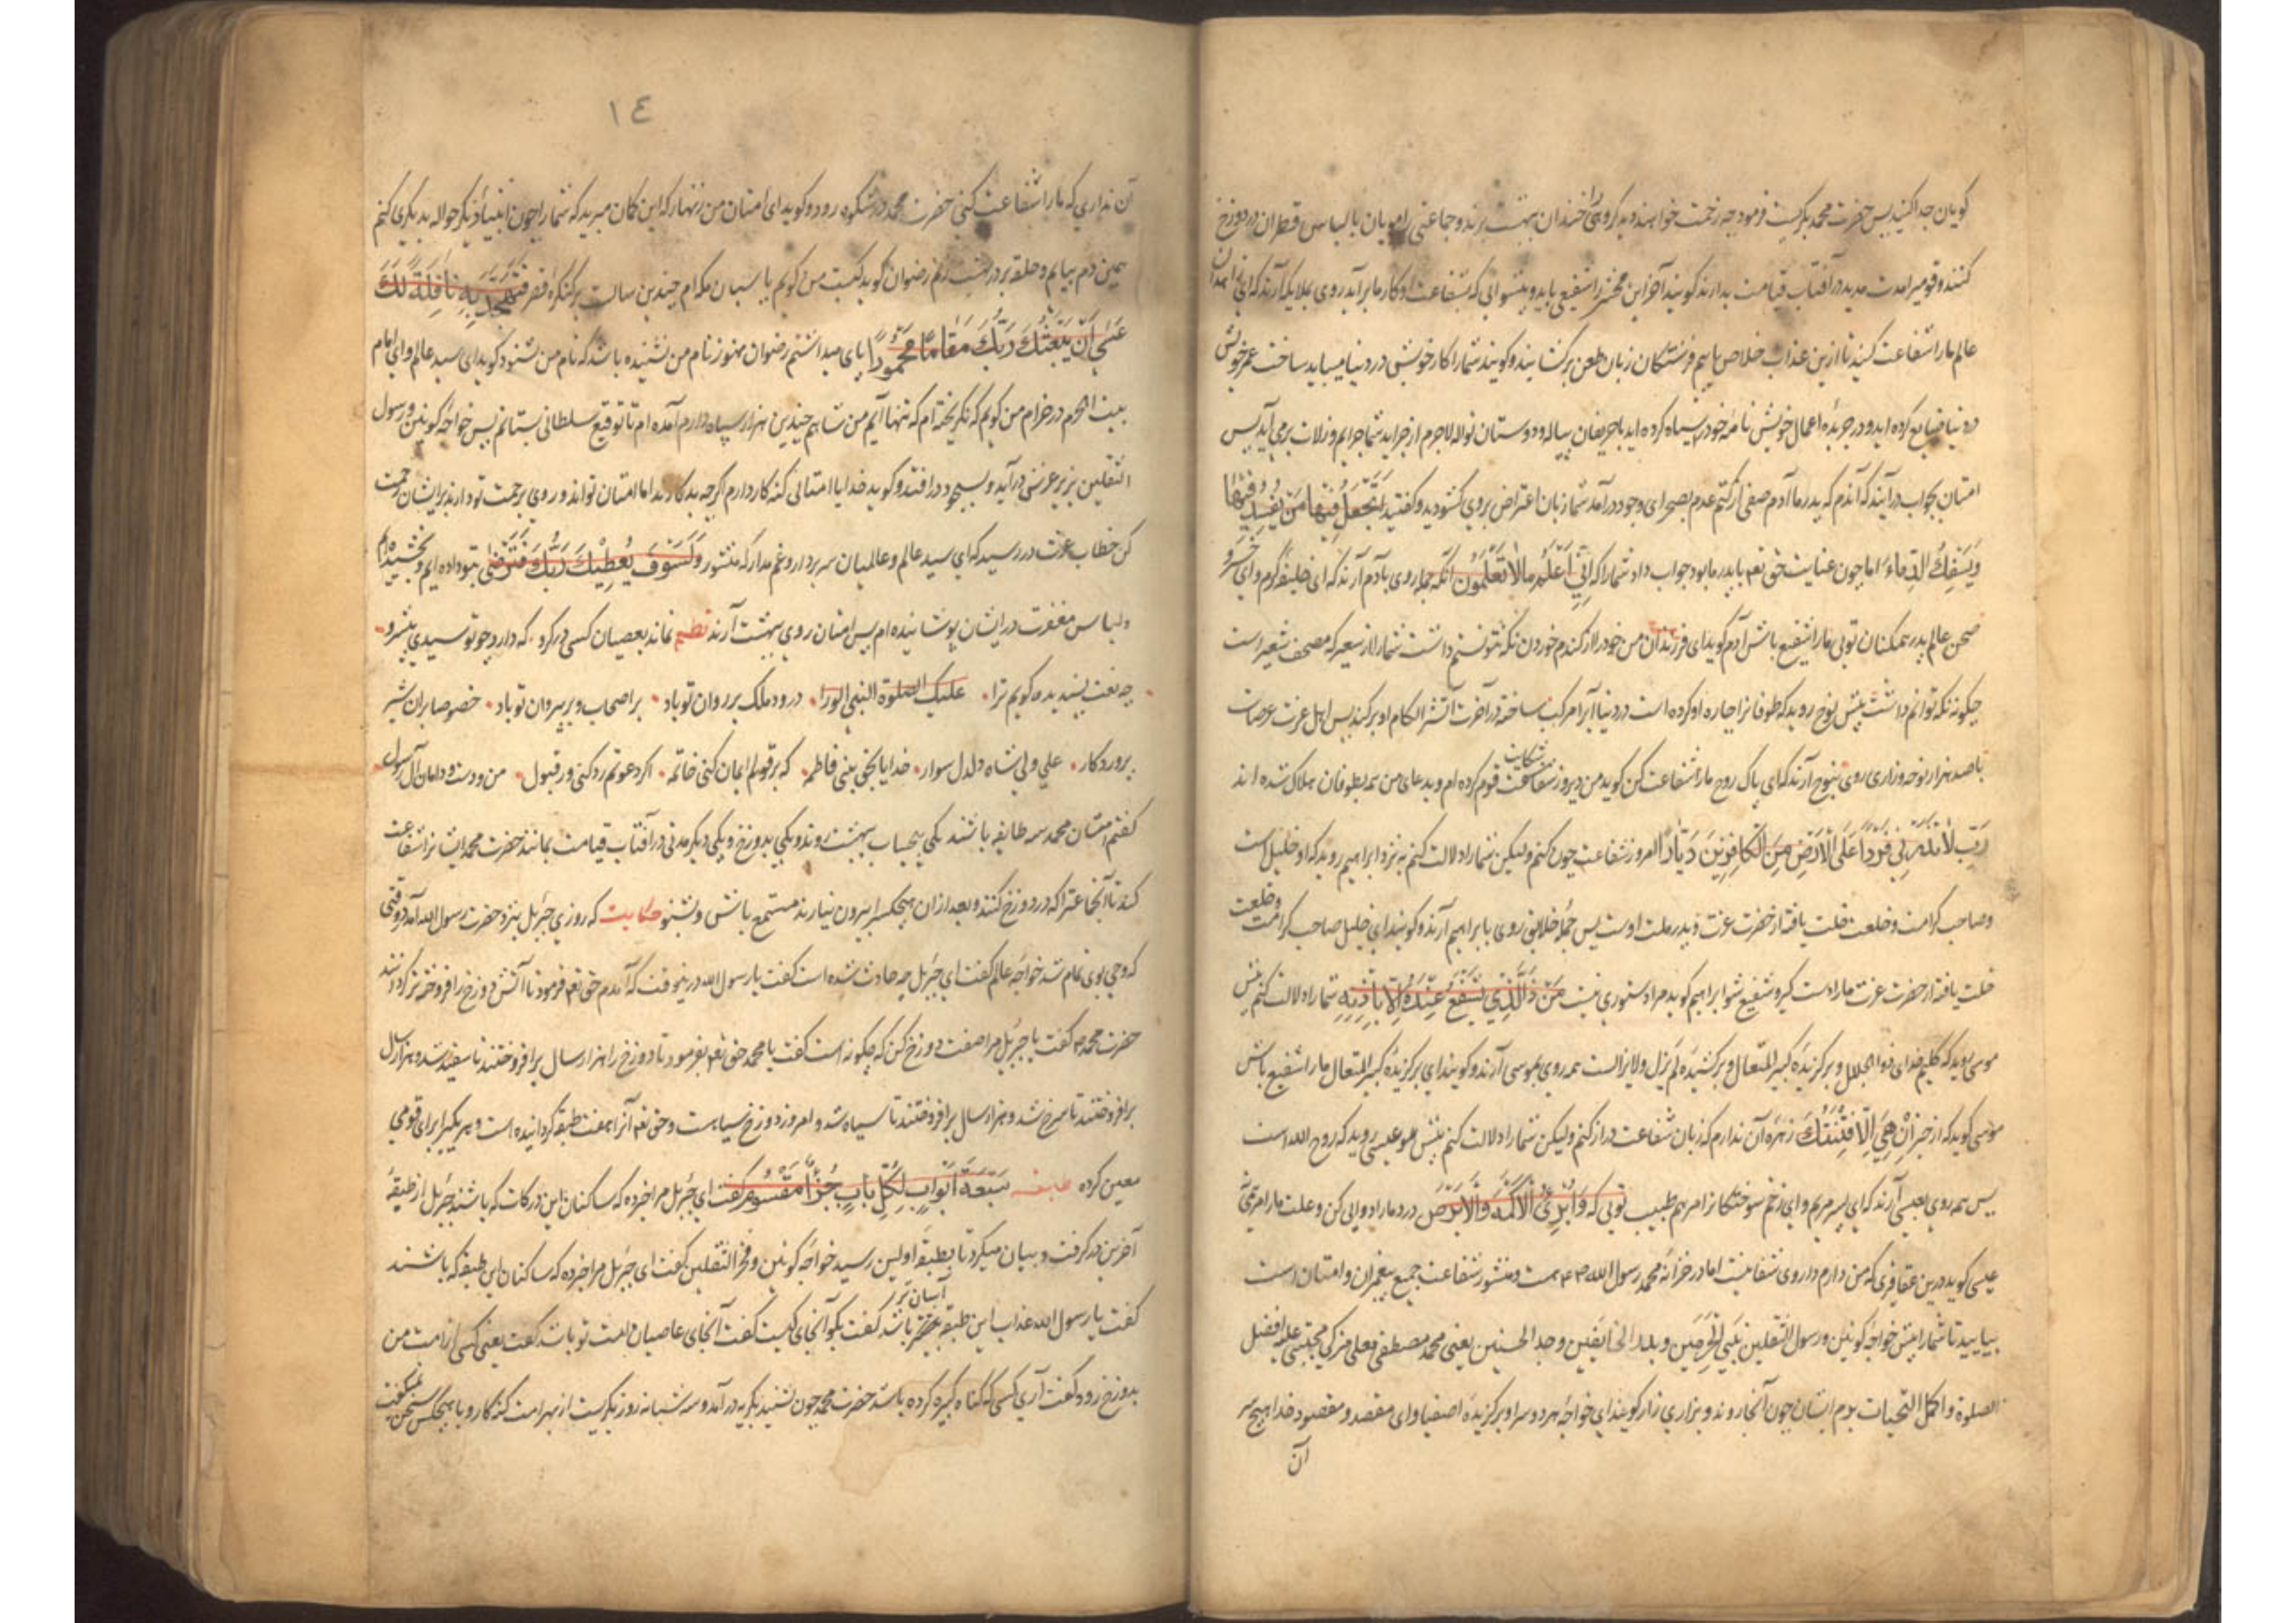 گویان جدا کنید پس حضرت محمد بگریست و فرمود چه زحمت خواهند دید گروهی را خندان بهشت برند و جماعتی را مویان با لباس قطران در دوزخ
کنند و قومی را مدت مدید در آفتاب قیامت بدارند گویند آخر این محشر را شفیعی باید و پیشوایی که بشفاعت او کار ما برآید روی بملایکه آرند که ای
عالم ما را شفاعت کنید تا ازین عذاب خلاص یابیم فرشتگان زبان طعن برگشایند و گویند شما را کار خویش در دنیا میباید ساخت عمر خویش
در دنیا ضایع کرده اید و در جریده اعمال خویش نامه خود را سیاه کرده اید با حریفان پیاله و دوستان نواله لاجرم از جراید شما جرایم و زلات برمی آید پس
امتان بجواب درآیند که آندم که پدر ما آدم صفی از کتم عدم بصحرای وجود درآمد شما زبان اعتراض بروی گشودید و گفتید اتجعل فیها من یفسد فیها
ویسفک الدماء اما چون عنایت حق تعم با پدر ما بود جواب داد شما را که انی اعلم ما لا تعلمون آنگه جمله روی بآدم آرند که ای خلیفه کرم و ای خسرو
صحن عالم پدر همگنان تویی ما را شفیع باش آدم گوید ای فرزندان من خود را از گندم خوردن نگه نتوانستم داشت شما را از سعیر که مصحف شعیر است
چگونه نگه توانم داشت پیش نوح روید که طوفانرا اجاره او کرده است در دنیا آبرا مرکب ساخته در آخرت آتش را لگام او بر کند پس اهل عرصات
با صد هزار نوحه و زاری روی بنوح آرند که ای پاک روح ما را شفاعت کن گوید من دیروز شکایت قوم کرده ام و بدعای من همه بطوفان هلاک شده اند
رب لا تذرنی فردا علی الارض من الکافرین دیارا امروز شفاعت چون کنم ولیکن شما را دلالت کنم به نزد ابراهیم روید که او خلیل است
و صاحب کرامت و خلعت خلت یافته از حضرت عزت و پدر ملت اوست پس جمله خلایق روی بابراهیم آرند و گویند ای خلیل صاحب کرامت و خلعت
خلت یافته از حضرت عزت ما را دست گیر و شفیع شو ابراهیم گوید مرا دستوری نیست من ذالذی یشفع عنده الا باذنه شما را دلالت کنم پیش
موسی روید که کلیم خدای ذوالجلال و برگزیده کبیر المتعال و برکشیده لم یزل و لایزالست همه روی بموسی آرند و گویند ای برگزیده کبیر المتعال ما را شفیع باش
موسی گوید که از خبر ان هی الا فتنتک زهره آن ندارم که زبان شفاعت دراز کنم ولیکن شما را دلالت کنم پیش عیسی روید که روح الله است
پس همه روی بعیسی آرند که ای پسر مریم و ای زخم سوختگانرا مرهم طبیب تویی که وابرئ الاکمه والابرص درد ما را دوایی کن و علت ما را
عیسی گوید درین عقاقیری که من دارم داروی شفا نیست اما در خزانه محمد رسول الله هست و منشور شفاعت جمیع پیغمبران و امتان است
بیایید تا شما را پیش خواجه کونین و رسول الثقلین نبی الحرمین و جد الحسنین یعنی محمد مصطفی معلی مزکی مجتبی علیه افضل
الصلوة و اکمل التحیات بریم ایشان چون آنجا روند و بزاری زار گویند ای خواجه هر دو سرا و برگزیده اصفیا و ای مقصد و مقصود خدا هیچ سر
آن
١٤
آن نداری که ما را شفاعت کنی حضرت محمد در شکوه رود و گوید ای امتان من زنهار که این گمان مبرید که شما را چون انبیاء دیگر حواله بدیگری کنم
همین دم بیایم و حلقه بر در بهشت زنم رضوان گوید کیست من گویم پاسبان مکه ام چندین سالست بر کنگره قصر فتهجد به نافلة لک
عسی ان یبعثک ربک مقاما محمودا پای میداشتم رضوان هنوز نام من نشنیده باشد که نام من شنود گوید ای سید عالم و ای امام
بیت الحرم در خرام من گویم که نگریخته ام که تنها آیم من شاهم چندین هزار سپاه دارم آمده ام تا توقیع سلطانی بستانم پس خواجه کونین و رسول
الثقلین بزیر عرش درآید و بسجود درافتد و گوید خدایا امتانی گنه کار دارم اگرچه بدکارند اما امتان تواند و روی برحمت تو دارند بر ایشان رحمت
کن خطاب عزت در رسید که ای سید عالم و عالمیان سر بردار و غم مدار که منشور ولسوف یعطیک ربک فترضی بتو داده ایم و بخشیده ام
و لباس مغفرت در ایشان پوشانیده ام پس امتان روی ببهشت آرند نظم نماند بعصیان کسی در گرو که دارد چو تو سیدی پیشرو
چه نعت پسندیده گویم ترا علیک الصلوة النبی الورا درود ملک بر روان تو باد بر اصحاب و بر پیروان تو باد خصوصا بران شیر
پروردگار علی ولی شاه دلدل سوار خدایا بحق بنی فاطمه که بر قولم ایمان کنی خاتمه اگر دعوتم رد کنی ور قبول من و دست و دامان آل رسول
گفتم امتان محمد سه طایفه باشند یکی بیحساب ببهشت روند و یکی بدوزخ و یکی دیگر مدتی در آفتاب قیامت بمانند حضرت محمد ایشانرا شفاعت
کند تا آنجماعترا که در دوزخ کنند و بعد ازان هیچکسرا بیرون نیارند مستمع باش و بشنو حکایت که روزی جبرئیل بنزد حضرت رسول الله آمد در وقتی
که وحی بوی تمام شد خواجه عالم گفت ای جبرئیل چه حادث شده است گفت یا رسول الله درینوقت که آمدم حق تعم فرمود تا آتش دوزخ را افروخته تر گردانند
حضرت محمد گفت یا جبرئیل مرا صفت دوزخ کن که چگونه است گفت یا محمد حق تعم بفرمود تا دوزخ را هزار سال برافروختند تا سفید شد و هزار سال
برافروختند تا سرخ شد و هزار سال برافروختند تا سیاه شد و امروز دوزخ سیاهست و حق تعم آنرا هفت طبقه گردانیده است و هر یکیرا برای قومی
معین کرده سبعة ابواب لکل باب جزء مقسوم گفت ای جبرئیل مرا خبر ده که ساکنان این درکات که باشند جبرئیل از طبقه
آخرین در گرفت و بیان میکرد تا بطبقه اولین رسید خواجه کونین و فخر الثقلین گفت ای جبرئیل مرا خبر ده که ساکنان این طبقه که باشند
گفت یا رسول الله عذاب این طبقه آسان تر باشد گفت بگو آنجای کیست گفت آنجای عاصیان امت تو باشد گفت یعنی کسی از امت من
بدوزخ رود گفت آری کسی که گناه کبیره کرده باشد حضرت محمد چون بشنید بگریه درآمد و سه شبانه روز بگریست از بهر امت گنه کار و با هیچکس سخن نمیگفت